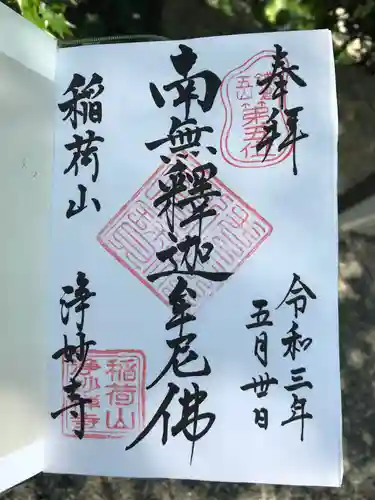 奉拝
令和三年
五月卅日
南無釋迦牟尼佛
稲荷山
浄妙寺
第五位
稲荷山
浄妙禅寺